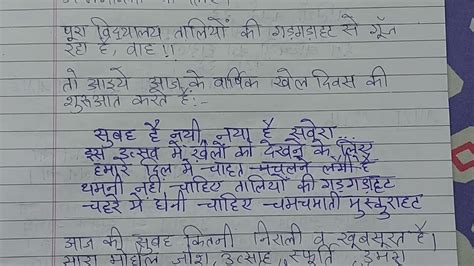 पूरा विद्यालय तालियों की गड़गड़ाहट से गूँज
रहा है, वाह!!
तो आइये आज के वार्षिक खेल दिवस की
शुरुआत करते हैं:-
सुबह है नयी, नया है सवेरा...
इस उत्सव में खेलों को देखने के लिए
हमारे दिल में चाहत मचलने लगी है
थमनी नहीं चाहिए तालियों की गड़गड़ाहट
चेहरे में होनी चाहिए चमचमाती मुस्कुराहट
आज की सुबह कितनी निराली व खूबसूरत है।
सारा माहौल जोश, उत्साह, स्फूर्ति,